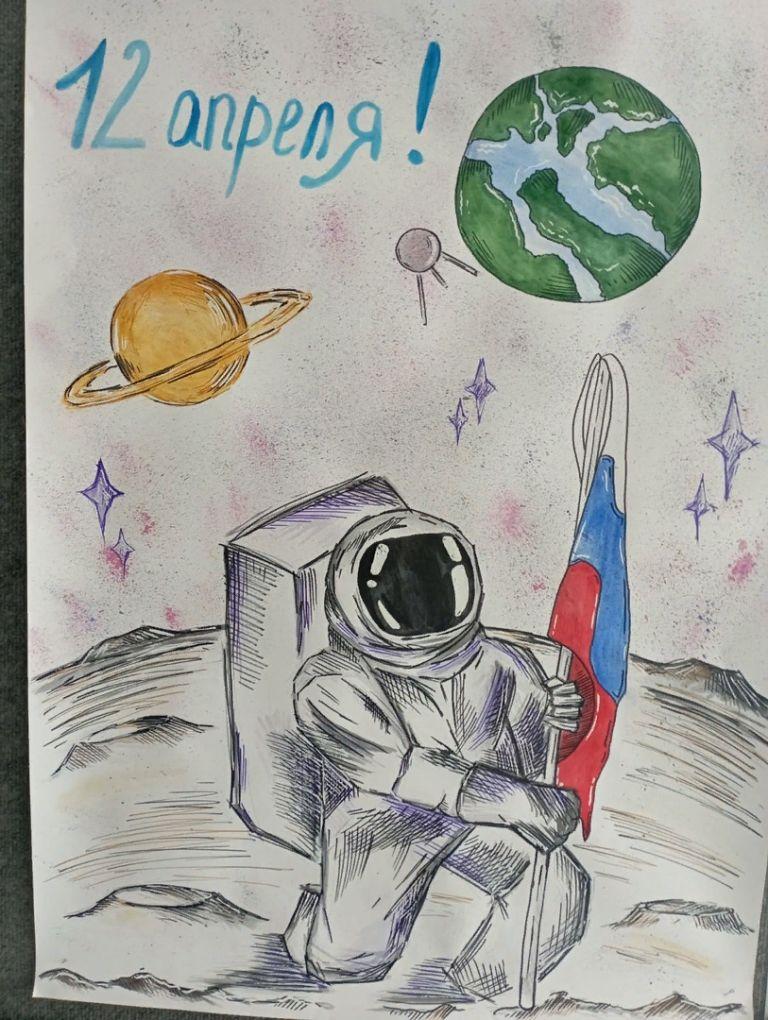 12 апреля!